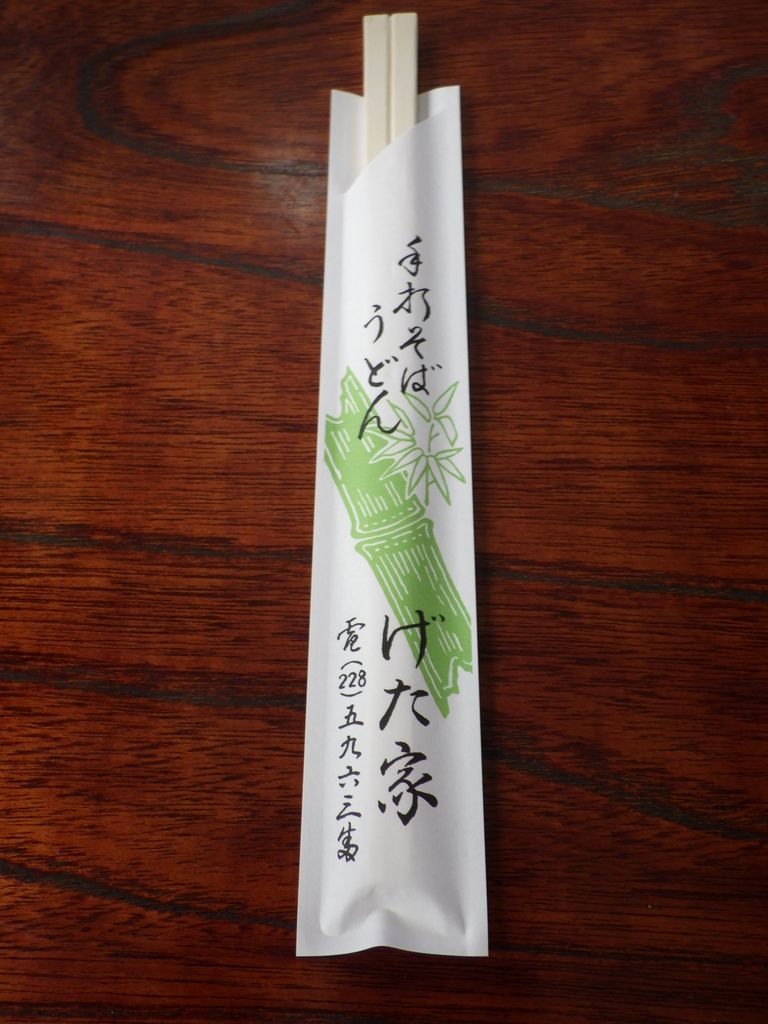 手打そば
うどん
げた家
電(228)五九六三番